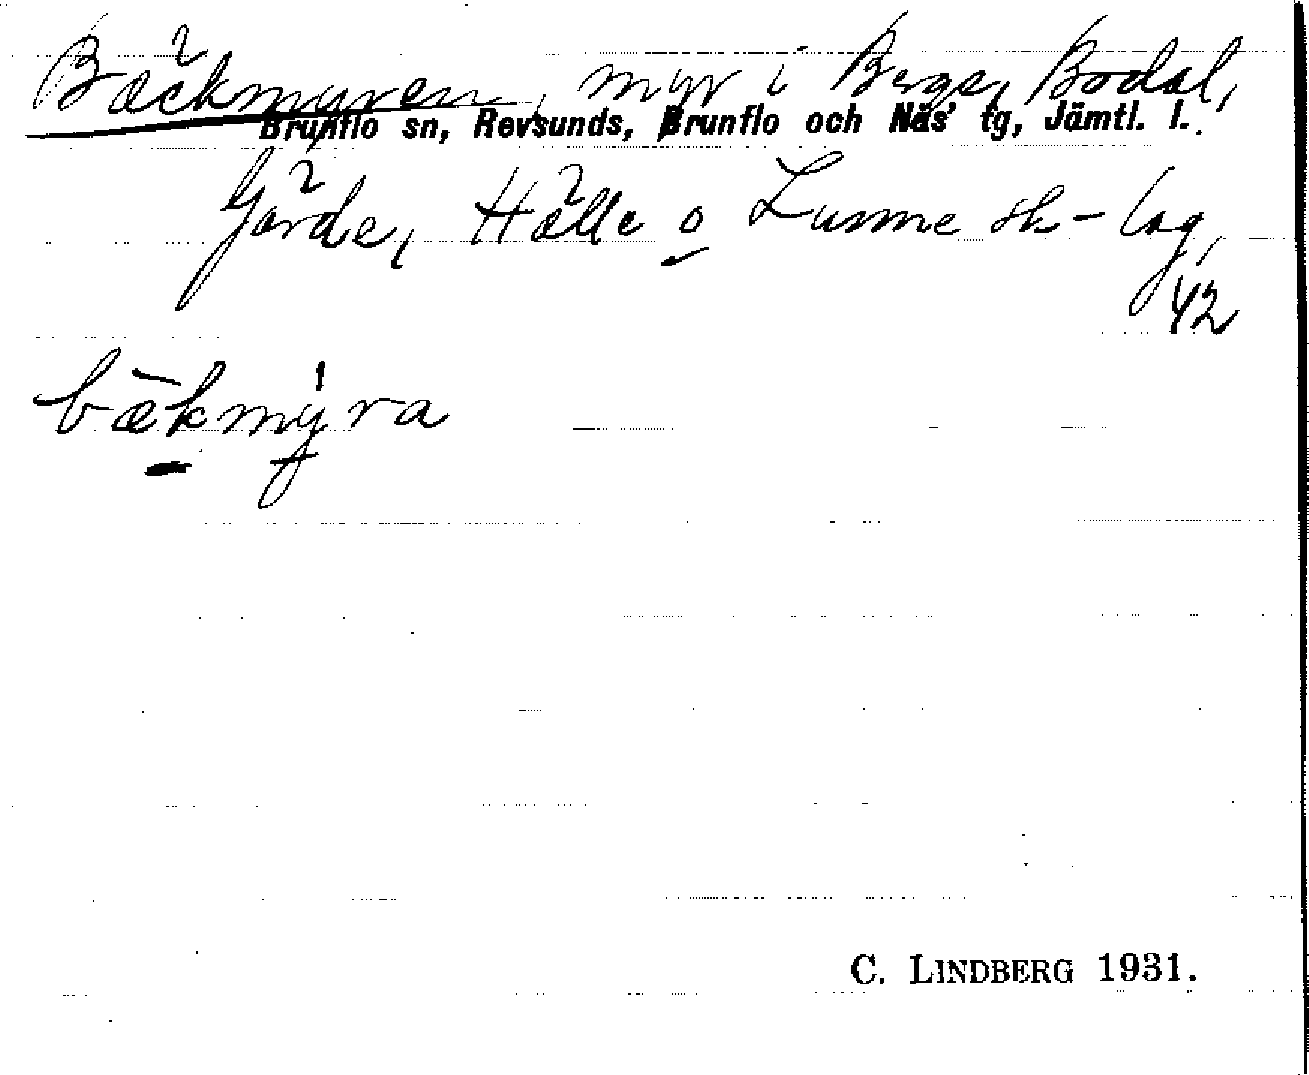 Bäckmyren, myr i Berge, Bodal,
Brunflo sn, Revsunds, Brunflo och Näs' tg, Jämtl. l.
Gärde, Hälle o Lunne sk-lag,
42
bækmýra
C. LINDBERG 1931.